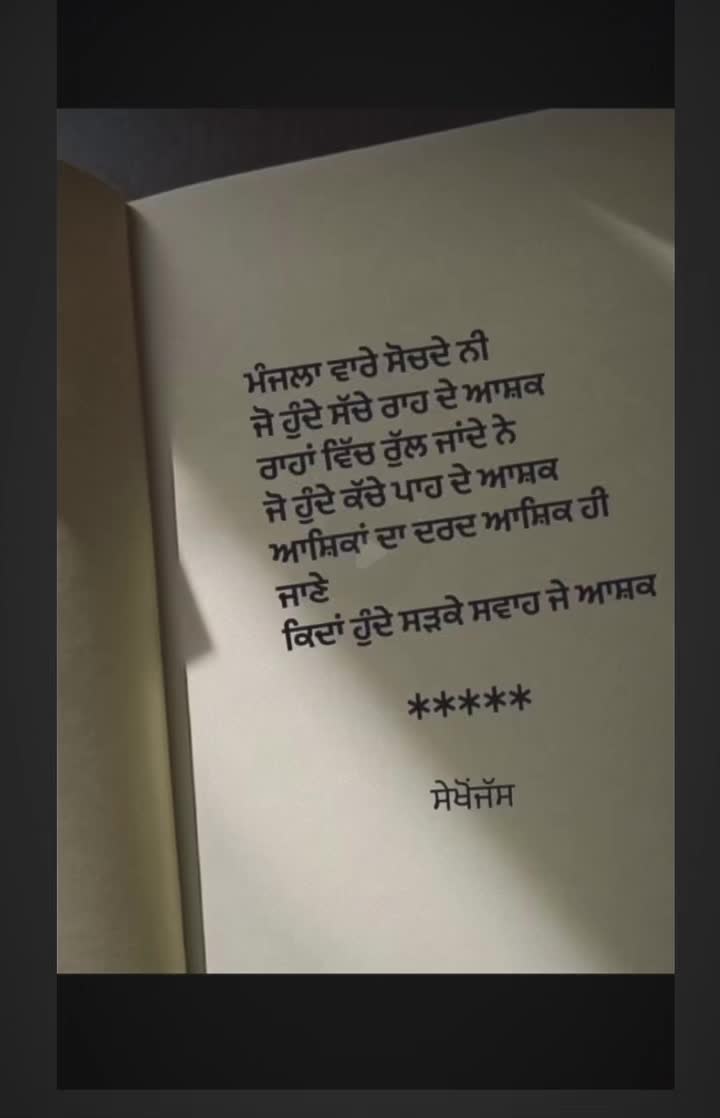 ਮੰਜਲਾ ਵਾਰੇ ਸੋਚਦੇ ਨੀ
ਜੋ ਹੁੰਦੇ ਸੱਚੇ ਰਾਹ ਦੇ ਆਸ਼ਕ
ਰਾਹਾਂ ਵਿੱਚ ਰੁੱਲ ਜਾਂਦੇ ਨੇ
ਜੋ ਹੁੰਦੇ ਕੱਚੇ ਪਾਹ ਦੇ ਆਸ਼ਕ
ਆਸ਼ਿਕਾਂ ਦਾ ਦਰਦ ਆਸ਼ਿਕ ਹੀ
ਜਾਣੇ
ਕਿਦਾਂ ਹੁੰਦੇ ਸੜਕੇ ਸਵਾਹ ਜੇ ਆਸ਼ਕ
*****
ਸੇਖੋਂਜੱਸ